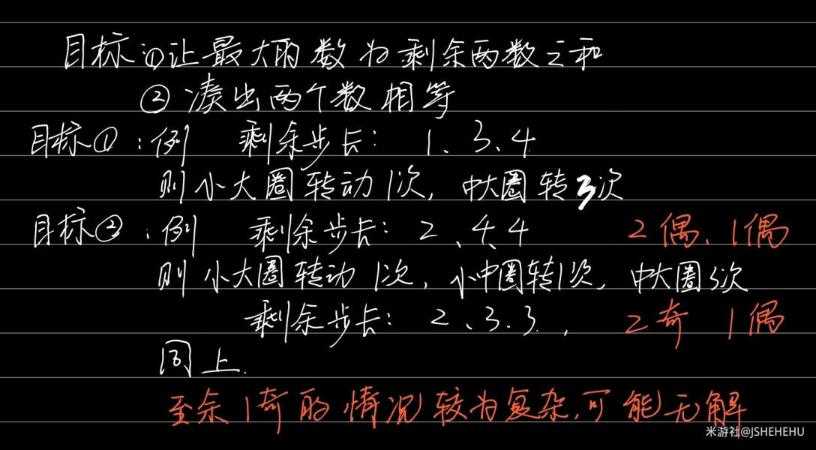 目标:①让最大的数为剩余两数之和
②凑出两个数相等
目标①:例 剩余步长: 1、3、4
则小大圈转动1次, 中大圈转3次
目标②:例 剩余步长: 2、4、4 2偶、1偶
则小大圈转动1次, 小中圈转1次, 中大圈3次
剩余步长: 2、3、3, 2奇 1偶
同上.
至余1奇的情况较为复杂,可能无解
米游社@JSHEHEHU